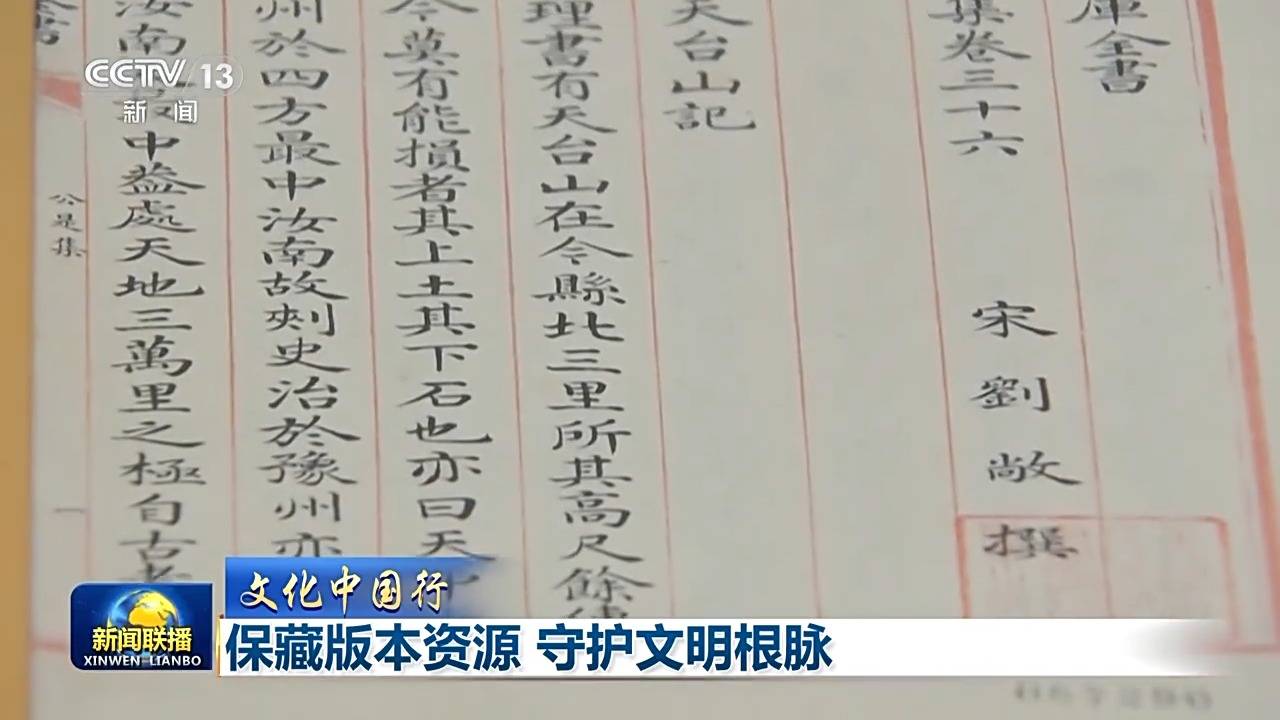 CCTV 13
新闻
庫全書
集卷三十六 宋劉敞撰
天台山記
理書有天台山在今縣北三里所其高尺餘
今莫有能損者其上土其下石也亦曰天中
州於四方最中汝南故刾史治於豫州亦
汝南 最中葢處天地三萬里之極自古老
公是集
一
文化中国行
新闻联播
XINWEN LIANBO
保藏版本资源 守护文明根脉